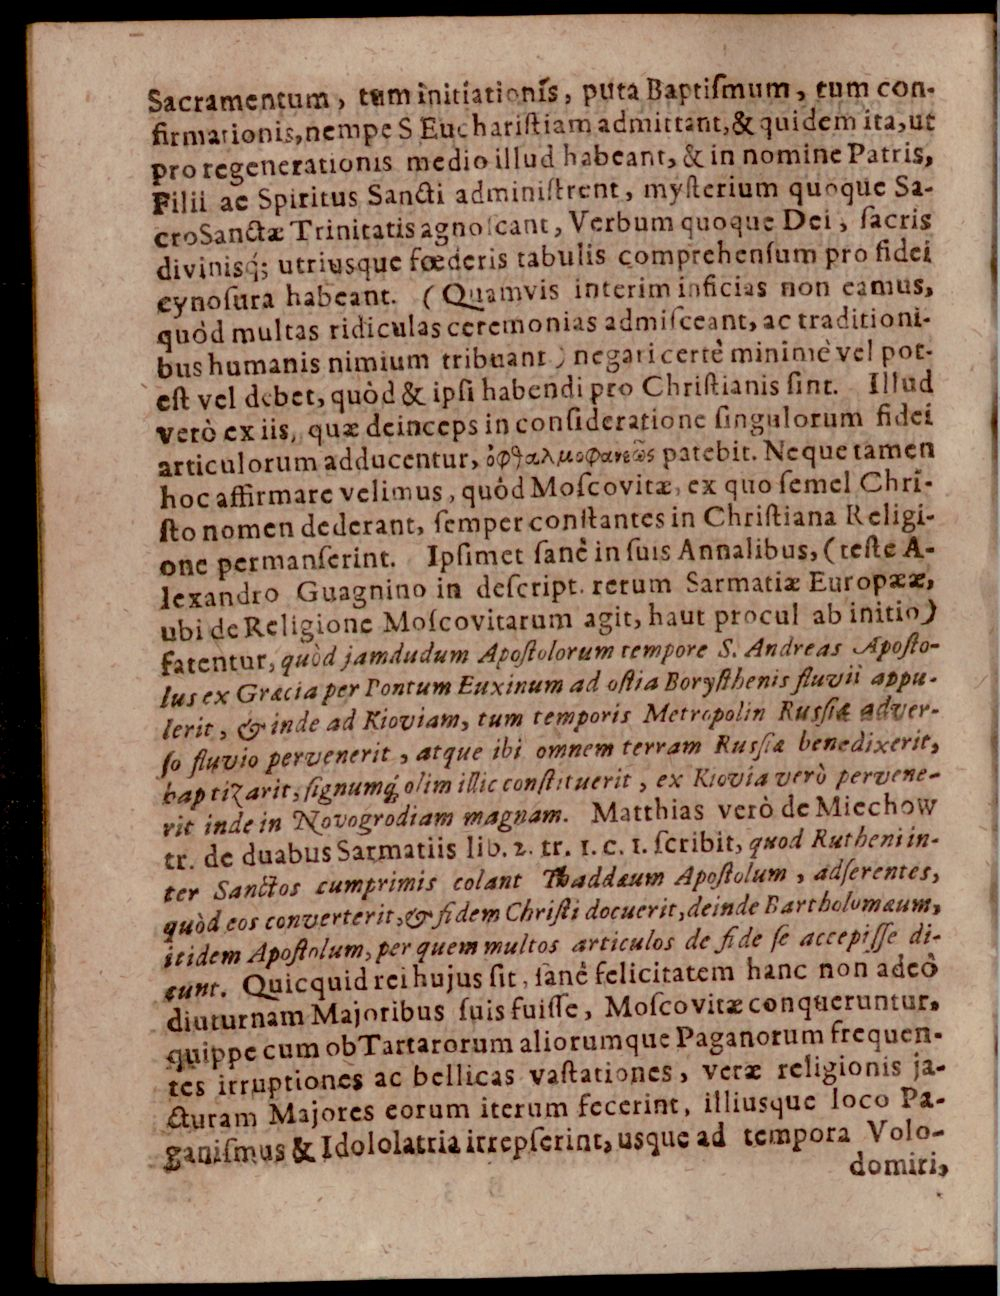 Sacramentum, tum initiationis, puta Baptiſmum, tum con-
firmationis, nempe S Euchariſtiam admittant, & quidem ita, ut
pro regenerationis medio illud habeant, & in nomine Patris,
Filii ac Spiritus Sancti adminiſtrent, myſterium quoque Sa-
croSanctæ Trinitatis agnoſcant, Verbum quoque Dei, ſacris
divinisq́; utriusque fœderis tabulis comprehenſum pro fidei
cynoſura habeant. (Quamvis interim inficias non eamus,
quòd multas ridiculas ceremonias admiſceant, ac traditioni-
bus humanis nimium tribuant) negari certè minimè vel pot-
eſt vel debet, quòd & ipſi habendi pro Chriſtianis ſint. Illud
verò ex iis, quæ deinceps in conſideratione ſingulorum fidei
articulorum adducentur, ὀφθαλμοφανῶς patebit. Neque tamen
hoc affirmare velimus, quòd Moſcovitæ, ex quo ſemel Chri-
ſto nomen dederant, ſemper conſtantes in Chriſtiana Religi-
one permanſerint. Ipſimet ſanè in ſuis Annalibus, (teſte A-
lexandro Guagnino in deſcript. rerum Sarmatiæ Europææ,
ubi de Religione Moſcovitarum agit, haut procul ab initio)
fatentur, quòd jamdudum Apoſtolorum tempore S. Andreas Apoſto-
lus ex Græcia per Pontum Euxinum ad oſtia Boryſthenis fluvii appu-
lerit, & inde ad Kioviam, tum temporis Metropolin Rusſiæ adver-
ſo fluvio pervenerit, atque ibi omnem terram Rusſiæ benedixerit,
baptizarit, ſignumq́; olim illic conſtituerit, ex Kiovia verò pervene-
rit inde in Novogrodiam magnam. Matthias verò de Miechow
tr. de duabus Sarmatiis lib. 2. tr. 1. c. 1. ſcribit, quod Rutheni in-
ter Sanctos cumprimis colant Thaddæum Apoſtolum, adſerentes,
quòd eos converterit, & fidem Chriſti docuerit, deinde Bartholomæum,
itidem Apoſtolum, per quem multos articulos de fide ſe accepiſſe di-
cunt. Quicquid rei hujus ſit, ſanè felicitatem hanc non adeò
diuturnam Majoribus ſuis fuiſſe, Moſcovitæ conqueruntur,
quippe cum ob Tartarorum aliorumque Paganorum frequen-
tes irruptiones ac bellicas vaſtationes, veræ religionis ja-
cturam Majores eorum iterum fecerint, illiusque loco Pa-
ganiſmus & Idololatria irrepſerint, usque ad tempora Volo-
domiri,